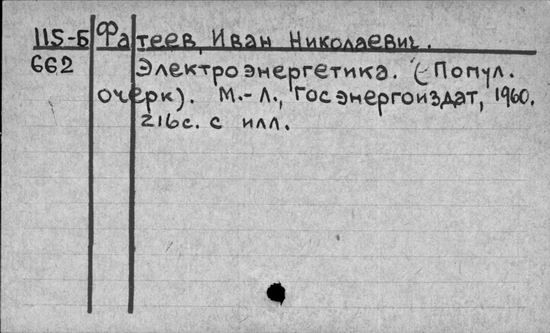 115-Б Фатеев, Иван Николаевич.
662 Электроэнергетика. (Попул.
очерк). М.-Л., Госэнергоиздат, 1960.
216с. с илл.